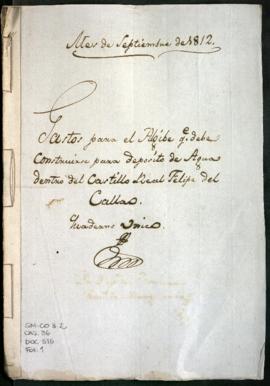 Mes de Septiembre de 1812.
Gastos para el Algibe q.e debe
Construirse para deposito de Agua
dentro del Castillo Real Felipe del
Callao.
Quaderno Unico
GM-CO 8.2
CAJ. 36
DOC. 516
Fol. 1